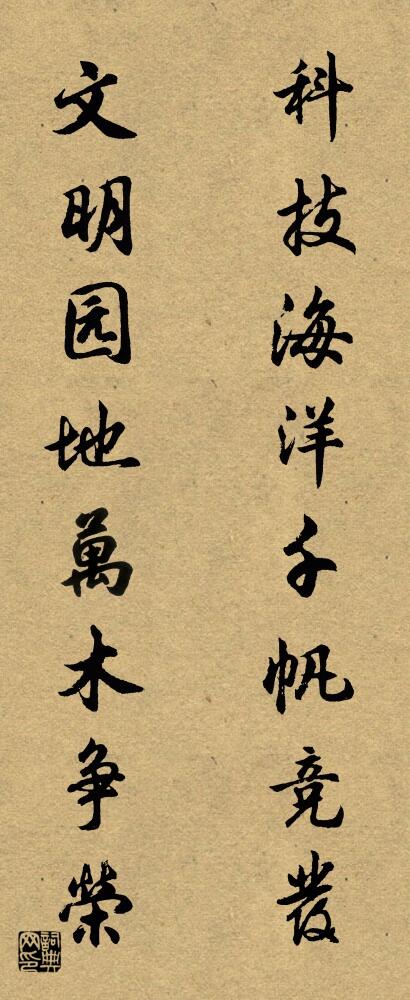 科技海洋千帆竞發
文明园地萬木争榮
詞典网印